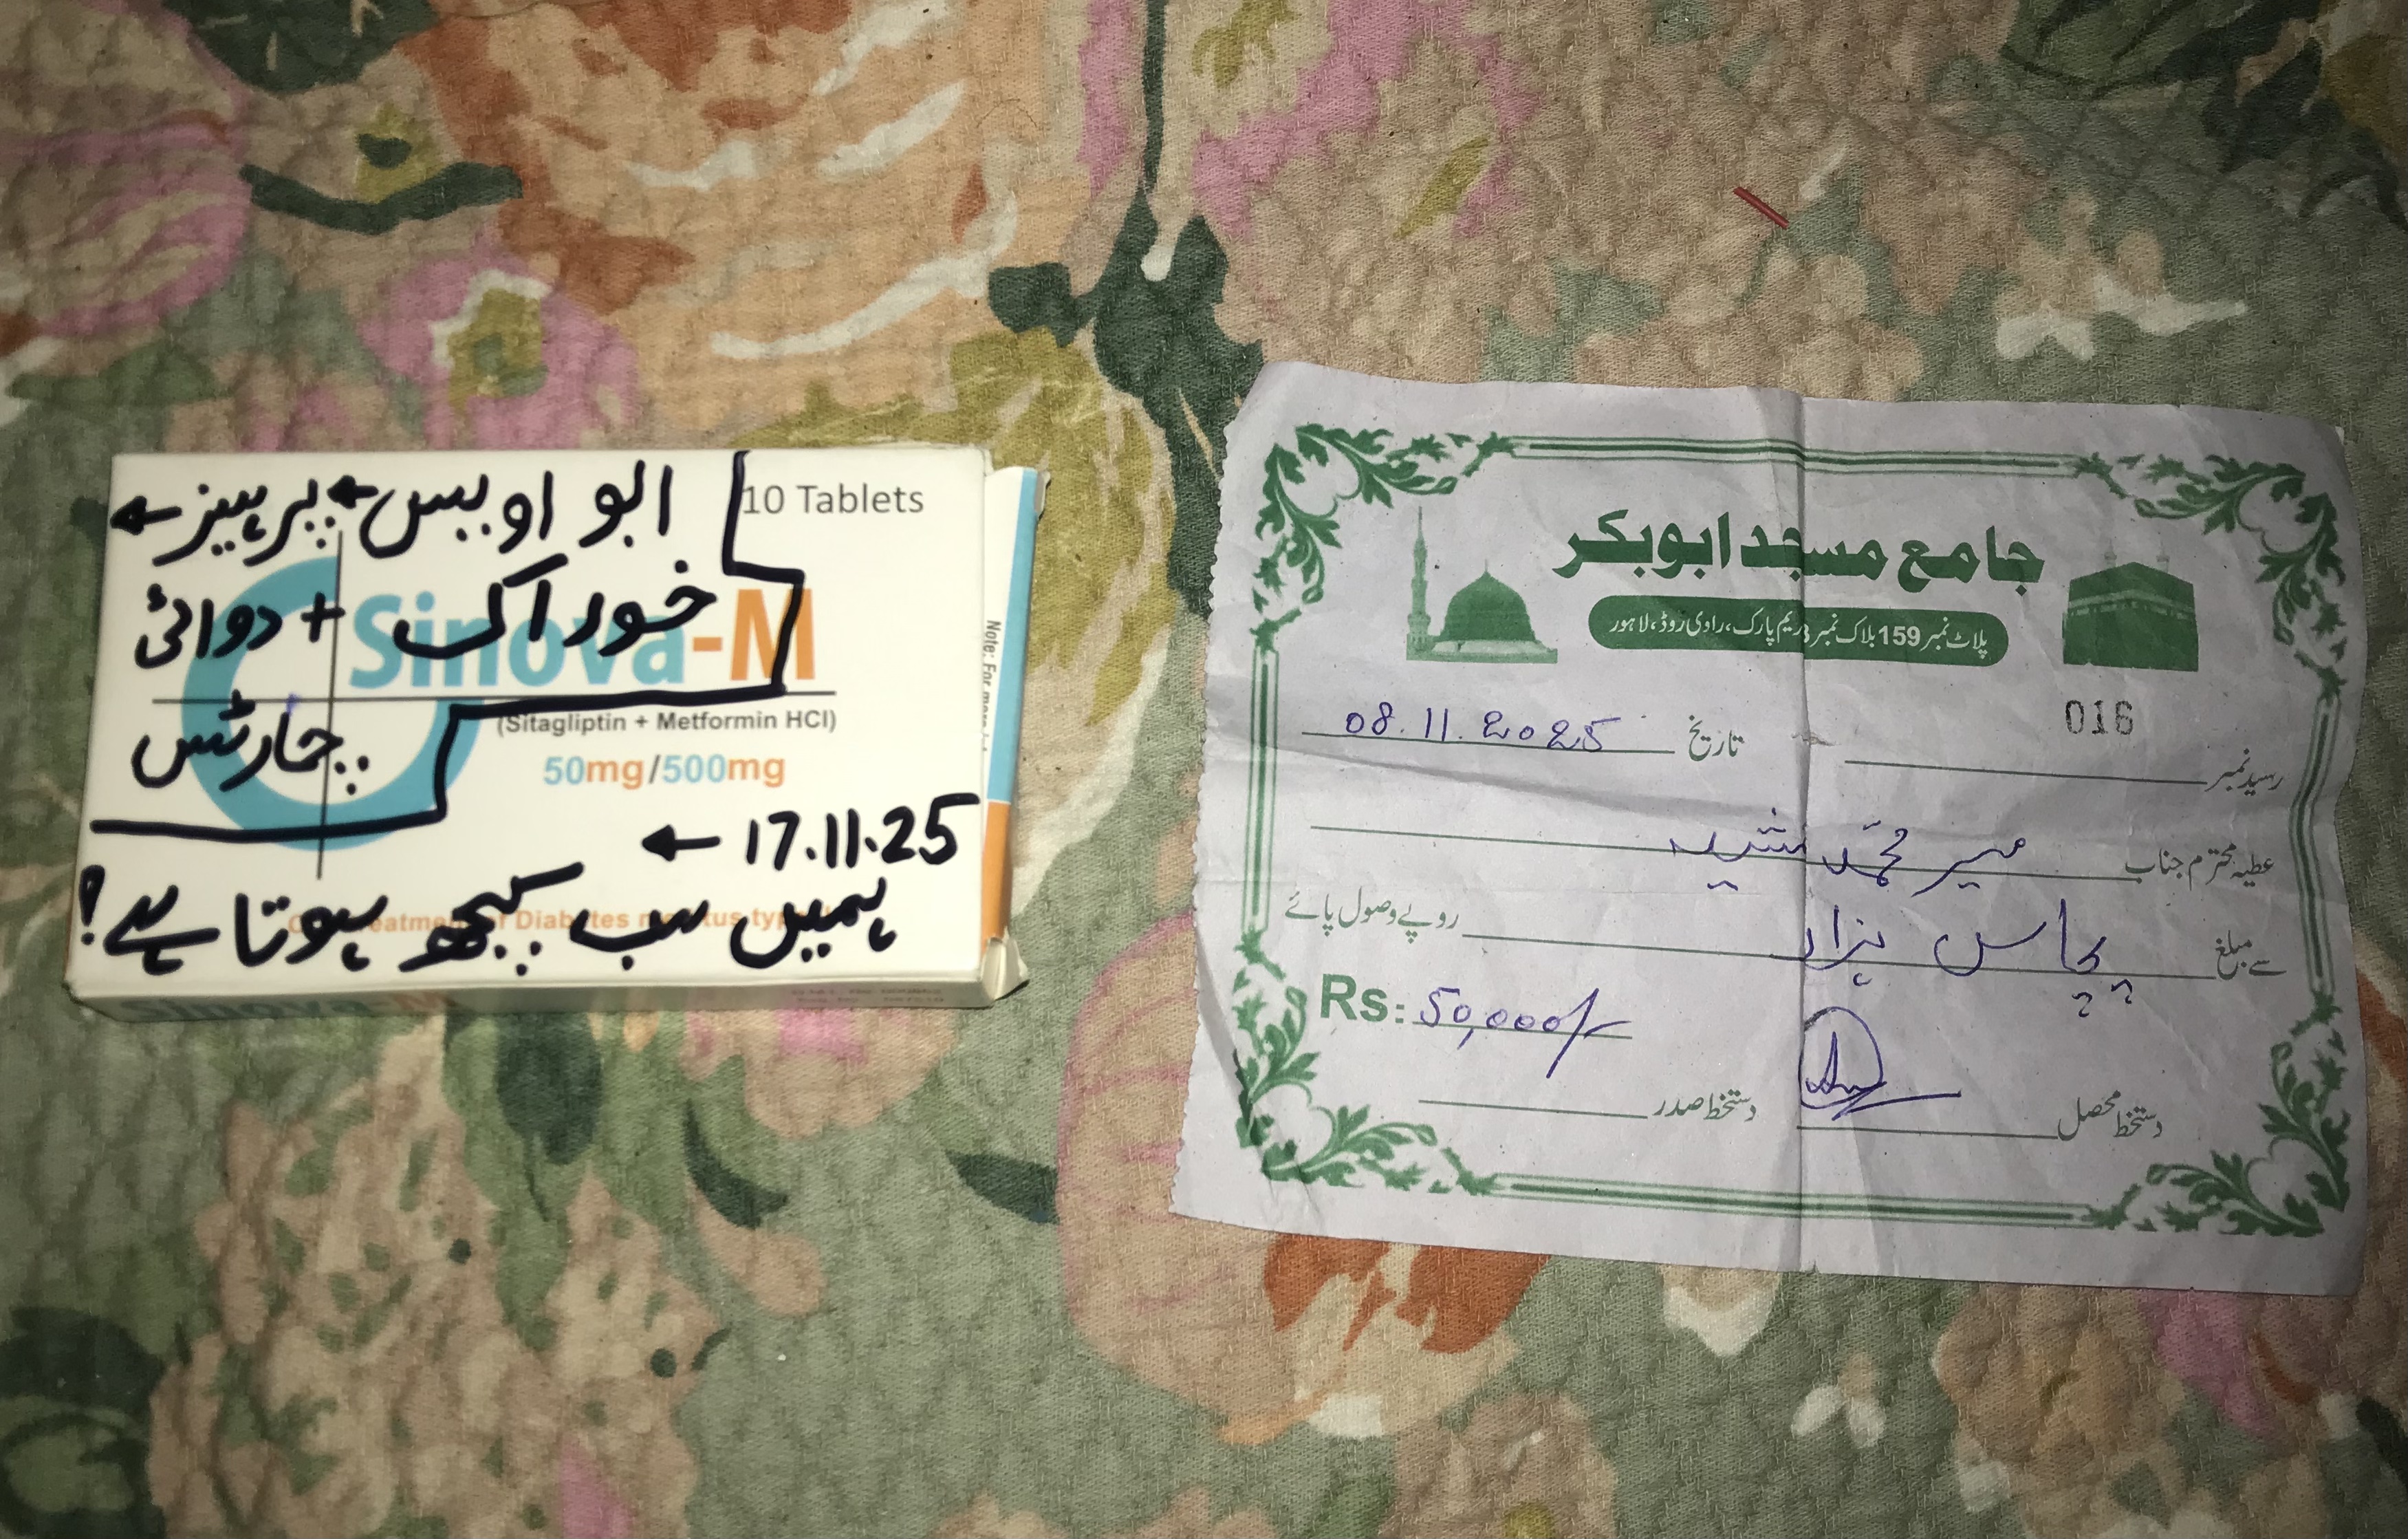 ابو اویس ← پرہیز ←
10 Tablets
خوراک + دوائی
Sinova-M
چارٹس
(Sitagliptin + Metformin HCl)
50mg/500mg
17.11.25 ←
ہمیں سب کچھ ہوتا ہے؟
Note: For more
Sinova-M
جامع مسجد ابوبکر
پلاٹ نمبر 159 بلاک نمبر 3 کریم پارک، راوی روڈ، لاہور
016
رسید نمبر
تاریخ 08.11.2025
عطیہ محترم جناب میر محمد
سے مبلغ پچاس ہزار روپے وصول پائے
Rs: 50,000/-
دستخط محصل
دستخط صدر